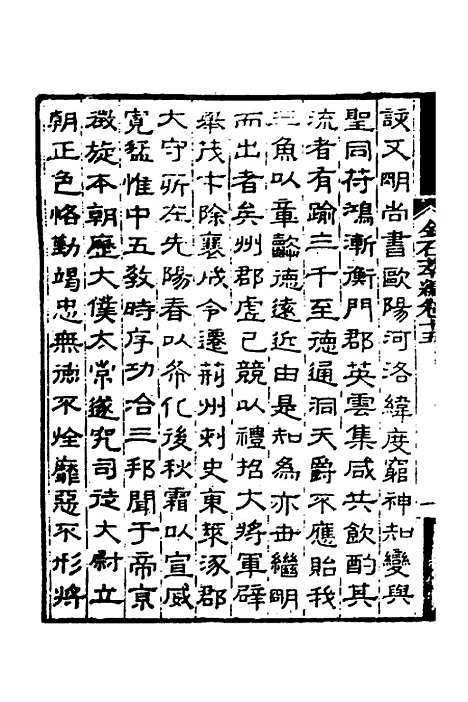 金石萃編卷十五
一
該又明尚書歐陽河洛緯度窮神知變與
聖同符鴻漸衡門郡英雲集咸共飲酌其
流者有踰三千至德通洞天爵不應貽我
三魚以章懿德遠近由是知為亦世繼明
而出者矣州郡虛己競以禮招大將軍辟
舉茂才除襄成令遷荊州刺史東萊涿郡
大守所在先陽春以布化後秋霜以宣威
寬猛惟中五教時序功洽三邦聞于帝京
徵旋本朝歷大僕太常遂究司徒大尉立
朝正色恪勤竭忠無德不烇靡惡不形將